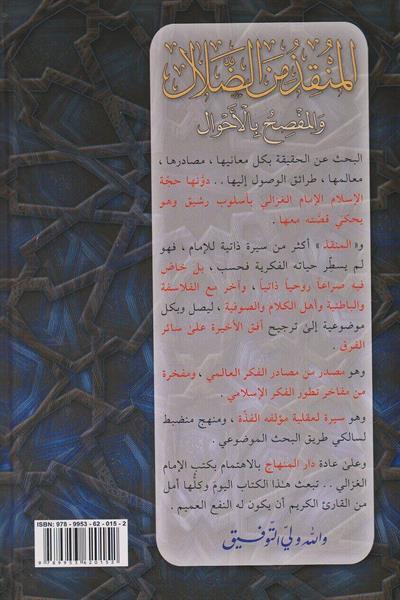 المنقذ من الضلال
والمفصح بالأحوال
البحث عن الحقيقة بكل معانيها ، مصادرها ،
معالمها ، طرائق الوصول إليها .. دوّنها حجّة
الإسلام الإمام الغزالي بأسلوب رشيق وهو
يحكي قصّته معها .
و« المنقذ » أكثر من سيرة ذاتية للإمام، فهو
لم يسطّر حياته الفكرية فحسب، بل خاض
فيه صراعاً روحياً ذاتياً ، وآخر مع الفلاسفة
والباطنية وأهل الكلام والصوفية ، ليصل وبكل
موضوعية إلىٰ ترجيح أفق الأخيرة علىٰ سائر
الفرق .
وهو مصدر من مصادر الفكر العالمي ، ومفخرة
من مفاخر تطور الفكر الإسلامي .
وهو سيرة لعقلية مؤلفه الفذّة ، ومنهج منضبط
لسالكي طريق البحث الموضوعي .
وعلىٰ عادة دار المنهاج بالاهتمام بكتب الإمام
الغزالي .. تبعث هذا الكتاب اليوم وكلّها أمل
من القارئ الكريم أن يكون له النفع العميم .
والله ولي التوفيق
ISBN: 978 - 9953 - 62 - 015 - 2
9789953620152